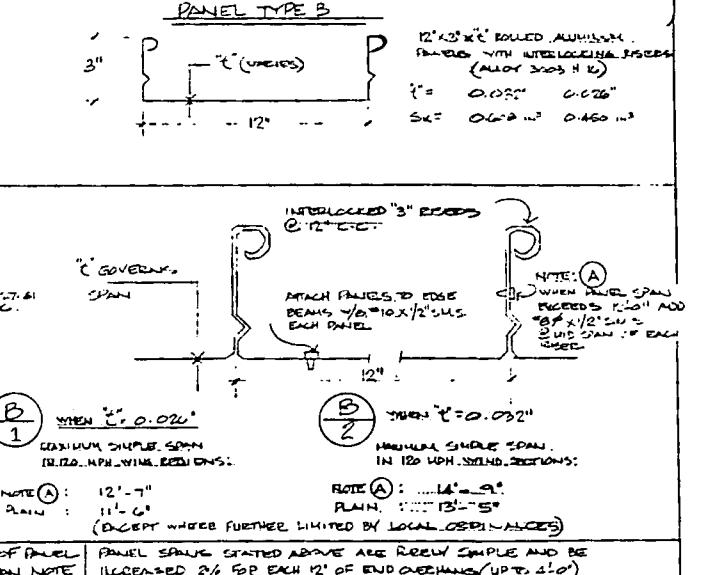 PANEL TYPE B
12" x 3" x "t" ROLLED ALUMINUM
PANELS WITH INTERLOCKING RISERS
(ALLOY 3003 H 16)
3"
"t" (VARIES)
t = 0.032" 0.026"
Sx = in³ 0.460 in³
12"
INTERLOCKED "3" RISERS
@ 12" C.C.
"t" GOVERNS
SPAN
ATTACH PANELS TO EDGE
BEAMS #10 x 1/2" S.M.S.
EACH PANEL
NOTE: A
WHEN PANEL SPAN
EXCEEDS ADD
#8 x 1/2" S.M.S
@ MID SPAN OF EACH
RISER
12"
B
1
WHEN "t" = 0.026"
MAXIMUM SIMPLE SPAN
IN 120 MPH WIND REGIONS:
NOTE A : 12'-7"
PLAIN : 11'-6"
B
2
WHEN "t" = 0.032"
MAXIMUM SIMPLE SPAN
IN 120 MPH WIND SECTIONS:
NOTE A : 14'-9"
PLAIN : 13'-5"
(EXCEPT WHERE FURTHER LIMITED BY LOCAL ORDINANCES)
OF PANEL
NOTE
PANEL SPANS STATED ABOVE ARE SIMPLE AND BE
INCREASED 2% FOR EACH 12" OF END OVERHANG (UP TO 4'-0")